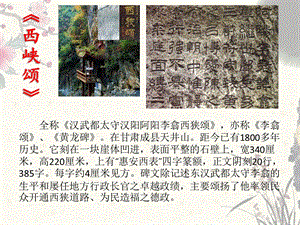 《西峡颂》
西狭颂
全称《汉武都太守汉阳阿阳李翕西狭颂》，亦称《李翕
颂》、《黄龙碑》。在甘肃成县天井山。距今已有1800多年
历史。它刻在一块崖体凹进，表面平整的石壁上，宽340厘
米，高220厘米，上有“惠安西表”四字篆额，正文阴刻20行，
385字。每字约4厘米见方。碑文除记述东汉武都太守李翕的
生平和屡任地方行政长官之卓越政绩，主要颂扬了他率领民
众开通西狭道路、为民造福之德政。